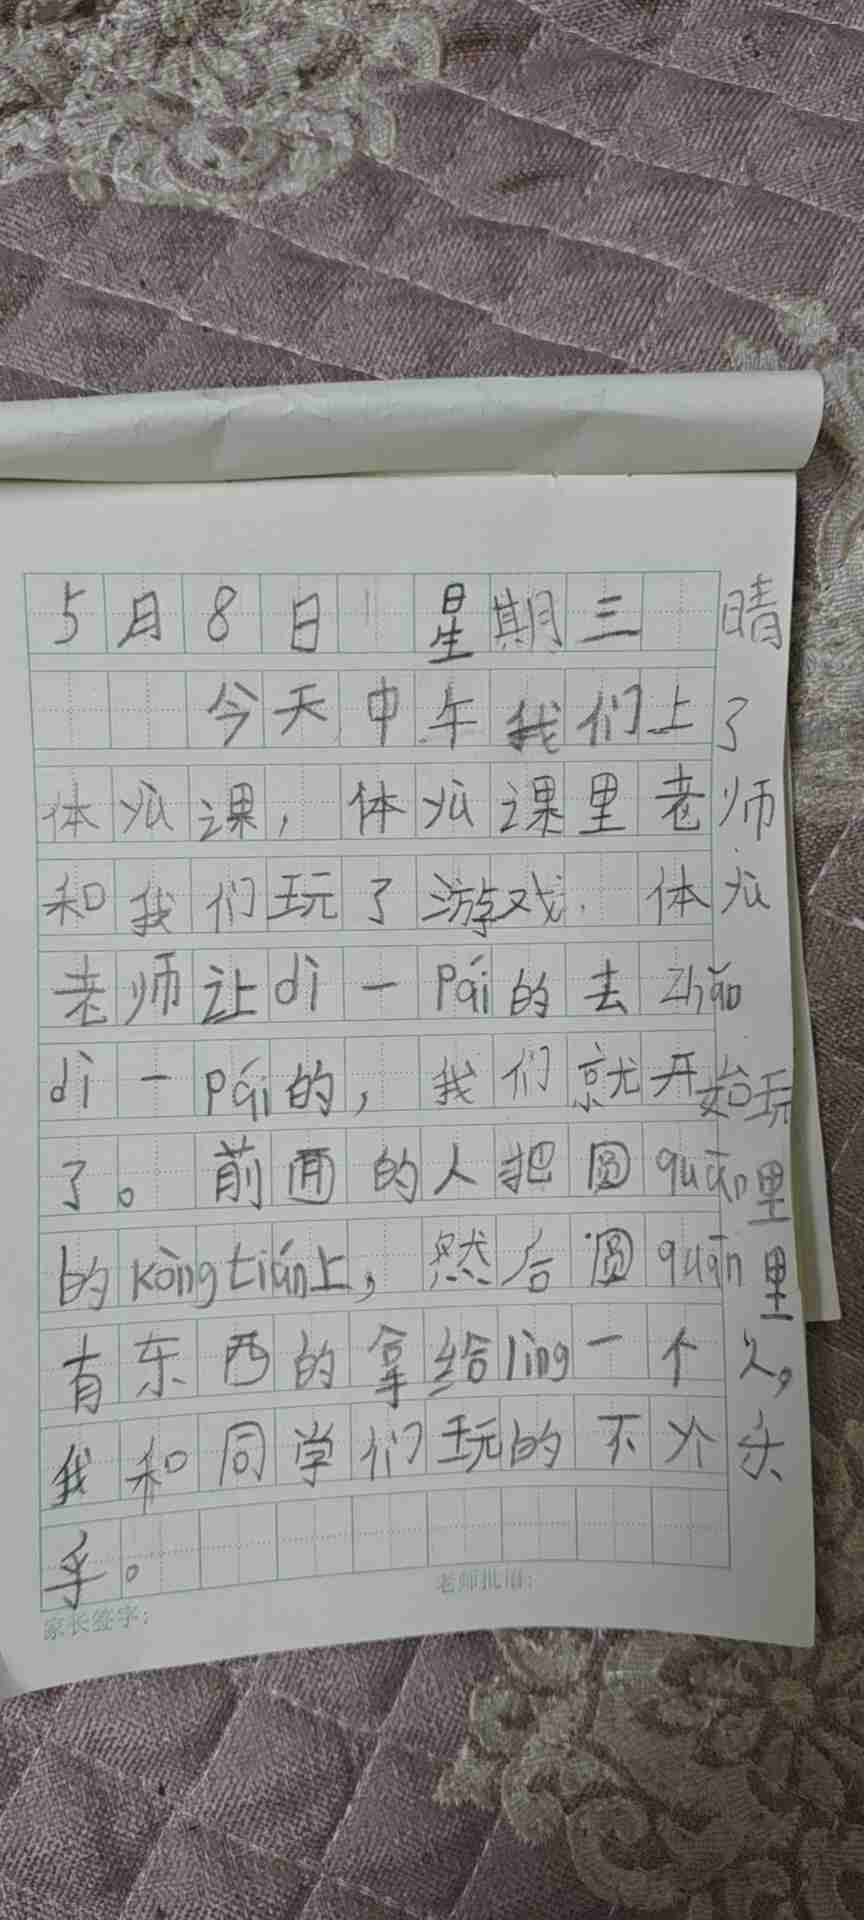 5月8日 星期三 晴
今天中午我们上了
体 课，体 课里老师
和我们玩了游戏. 体
老师让dì一Pái的去zhǎo
dì一Pái的，我们就开始玩
了。前面的人把圆quān里
的kòngtián上，然后圆quān里
有东西的拿给lìng一个人，
我和同学们玩的不
乎。
家长签字：
老师批语：